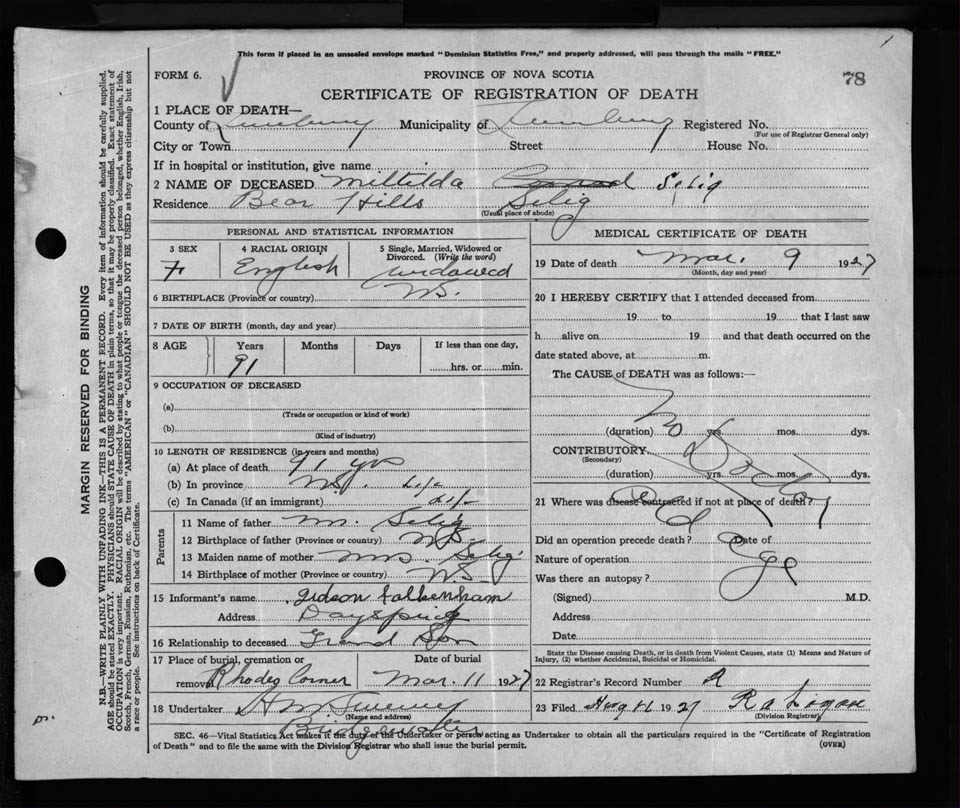 This form if placed in an unsealed envelope marked "Dominion Statistics Free," and properly addressed, will pass through the mails "FREE."
FORM 6.
PROVINCE OF NOVA SCOTIA
78
CERTIFICATE OF REGISTRATION OF DEATH
1 PLACE OF DEATH—
County of Lunenburg Municipality of Lunenburg Registered No.
(For use of Registrar General only)
City or Town Street House No.
If in hospital or institution, give name
2 NAME OF DECEASED Miltilda Selig
Residence Bear Hills Selig
(Usual place of abode)
PERSONAL AND STATISTICAL INFORMATION
3 SEX 4 RACIAL ORIGIN 5 Single, Married, Widowed or Divorced. (Write the word)
F English widowed
6 BIRTHPLACE (Province or country) N.S.
7 DATE OF BIRTH (month, day and year)
8 AGE Years Months Days If less than one day,
91 hrs. or min.
9 OCCUPATION OF DECEASED
(a)
(Trade or occupation or kind of work)
(b)
(Kind of industry)
10 LENGTH OF RESIDENCE (in years and months)
(a) At place of death 91 yrs
(b) In province N.S. Life
(c) In Canada (if an immigrant) Life
Parents
11 Name of father Mr. Selig
12 Birthplace of father (Province or country) N.S.
13 Maiden name of mother Mrs Selig
14 Birthplace of mother (Province or country) N.S.
15 Informant's name Gideon Falkenham
Address Dayspring
16 Relationship to deceased Grand Son
17 Place of burial, cremation or removal Date of burial
Rhodes Corner Mar. 11 1927
18 Undertaker
(Name and address)
Bridgewater
MEDICAL CERTIFICATE OF DEATH
19 Date of death Mar. 9 1927
(Month, day and year)
20 I HEREBY CERTIFY that I attended deceased from
19 to 19 that I last saw
h alive on 19 and that death occurred on the
date stated above, at m.
The CAUSE of DEATH was as follows:—
No Dr
(duration) yrs. mos. dys.
CONTRIBUTORY
(Secondary)
(duration) yrs. mos. dys.
21 Where was disease contracted if not at place of death?
Old Age
Did an operation precede death? Date of
Nature of operation
Was there an autopsy?
(Signed) M.D.
Address
Date
State the Disease causing Death, or in death from Violent Causes, state (1) Means and Nature of
Injury, (2) whether Accidental, Suicidal or Homicidal.
22 Registrar's Record Number
23 Filed 1927
(Division Registrar)
SEC. 46—Vital Statistics Act makes it the duty of the Undertaker or person acting as Undertaker to obtain all the particulars required in the "Certificate of Registration
of Death" and to file the same with the Division Registrar who shall issue the burial permit.
(OVER)
MARGIN RESERVED FOR BINDING
N.B.—WRITE PLAINLY WITH UNFADING INK—THIS IS A PERMANENT RECORD. Every item of information should be carefully supplied.
AGE should be stated EXACTLY. PHYSICIANS should STATE CAUSE OF DEATH in plain terms, so that it may be properly classified. Exact statement of
OCCUPATION is very important. RACIAL ORIGIN will be described by stating to what people or tongue the deceased person belonged, whether English, Irish,
Scotch, French, German, Russian, Ruthenian, etc. The terms "AMERICAN" or "CANADIAN" SHOULD NOT BE USED as they express citizenship but not
a race or people. See instructions on back of Certificate.